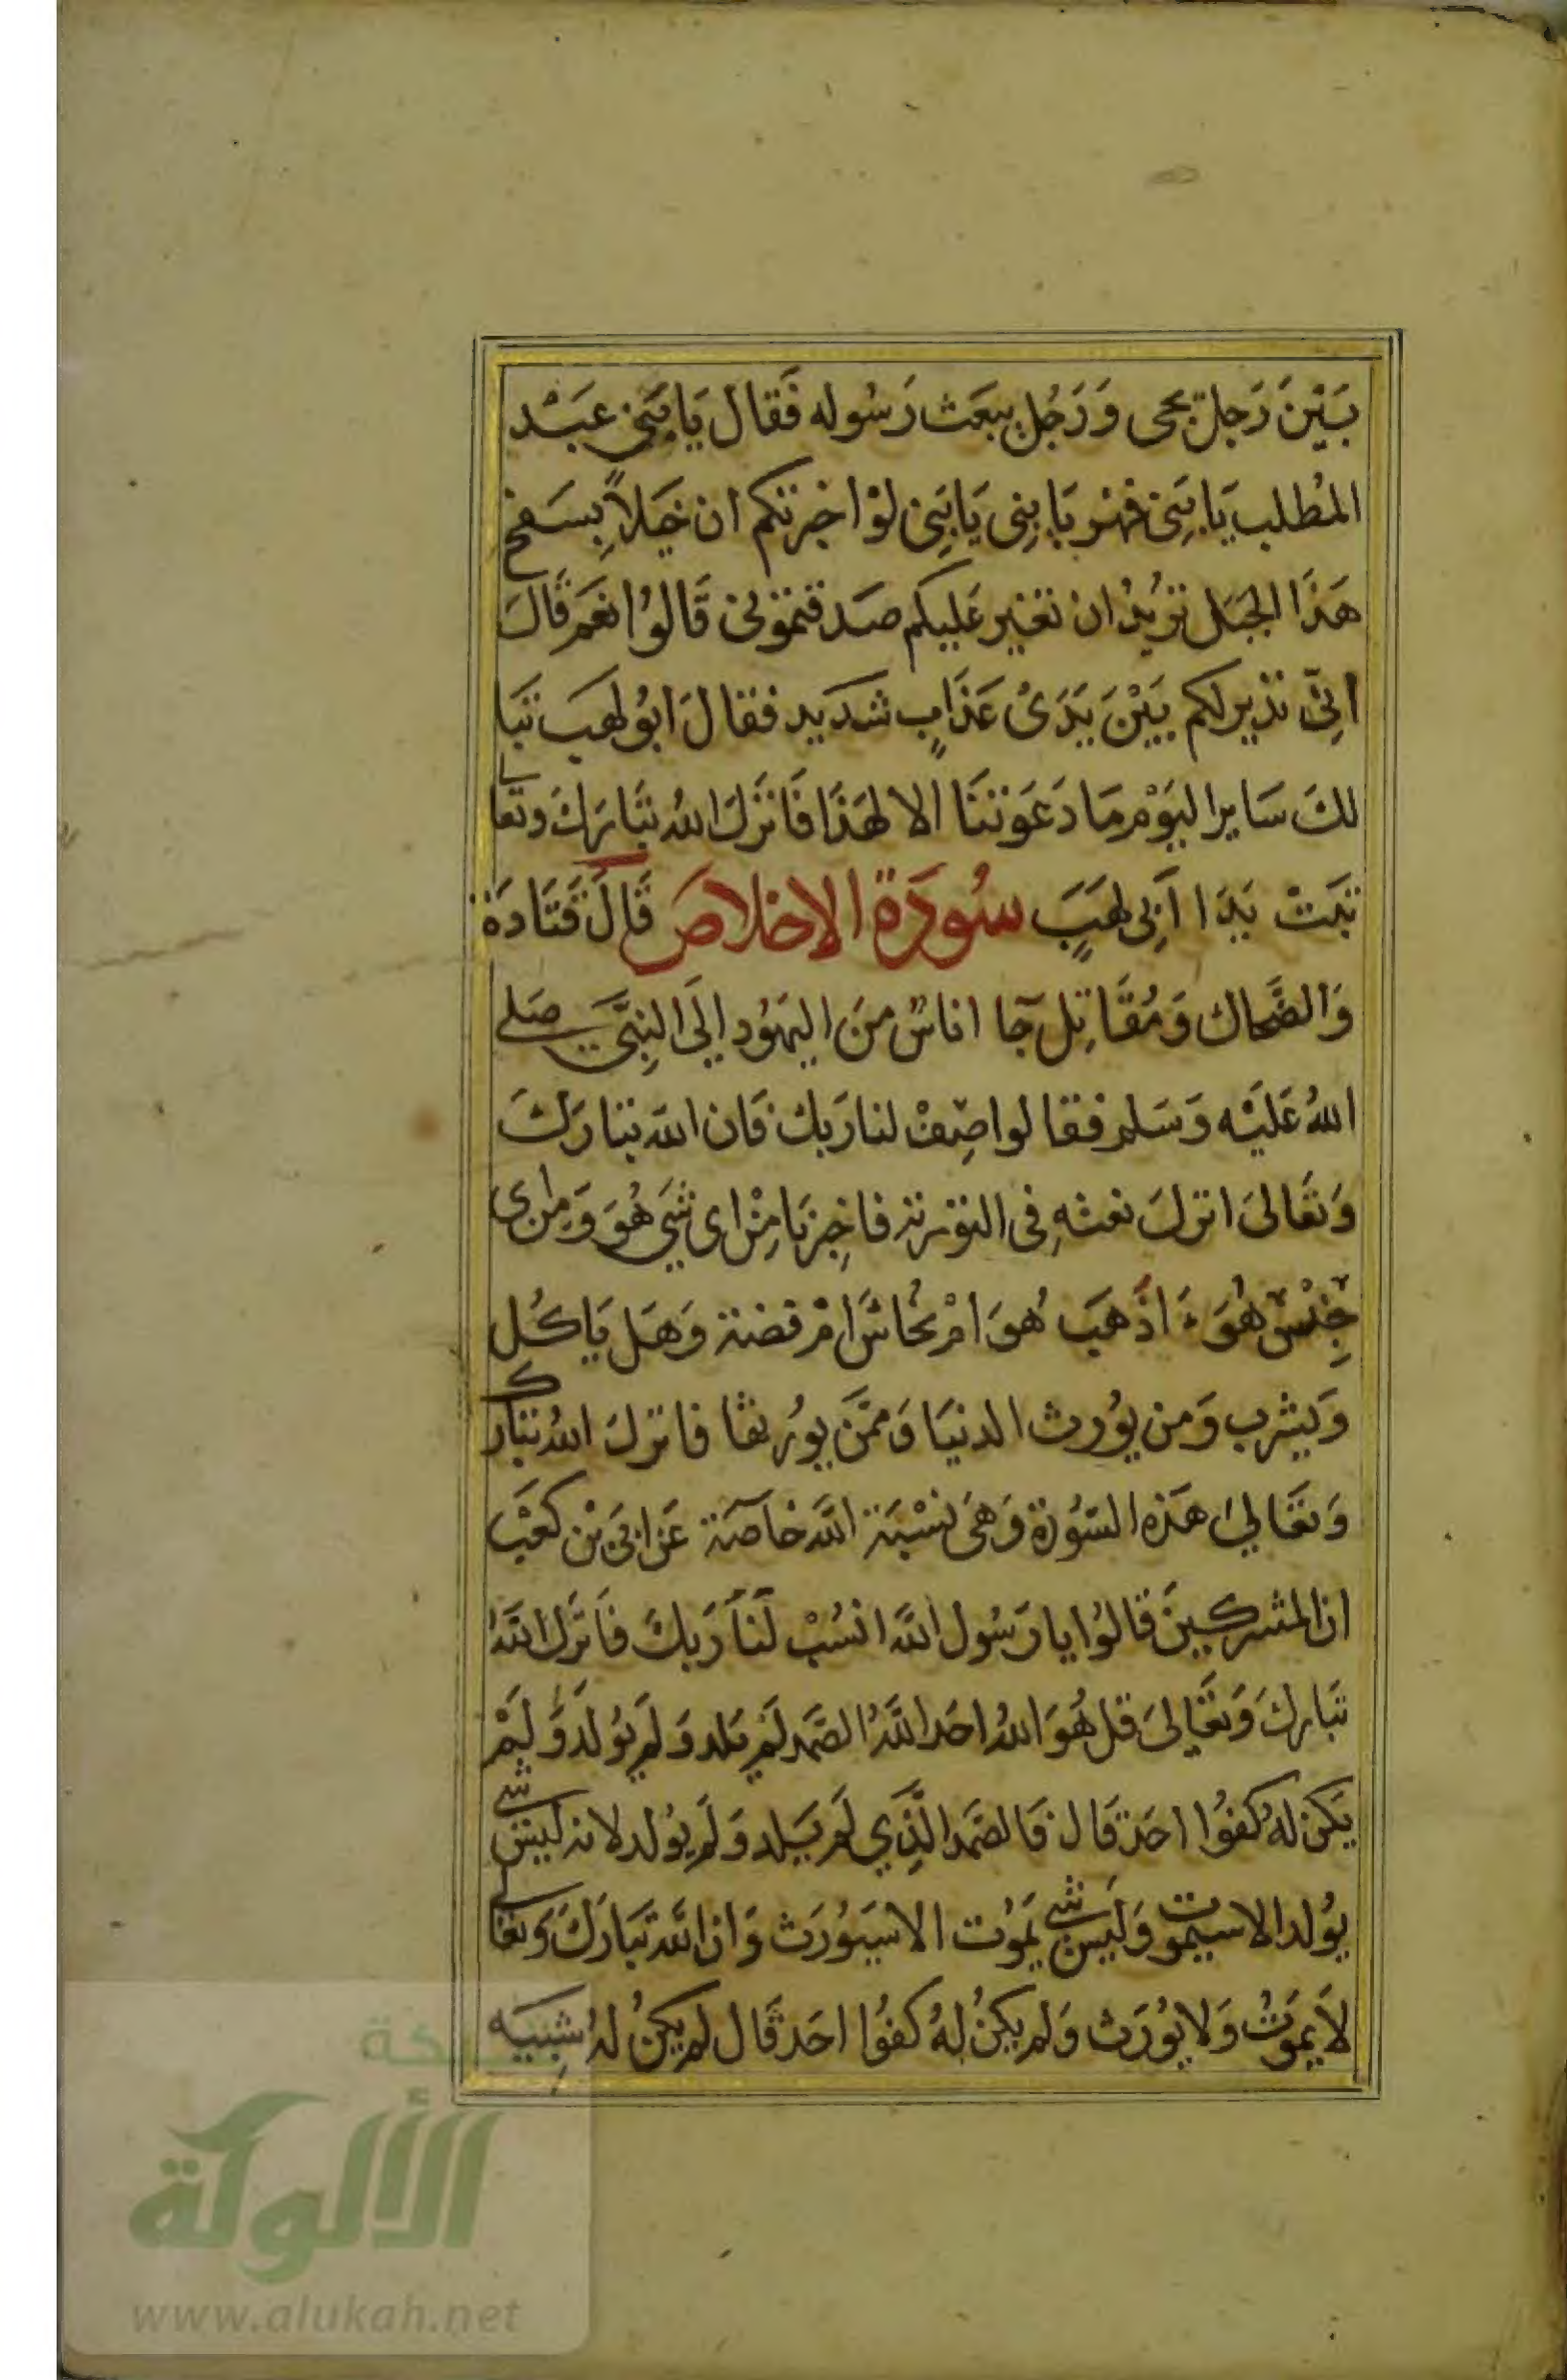 بَيْنَ رَجل يجى وَرَجُل يبعَث رَسُوله فَقَال يَا بَنِى عَبْد
المُطلب يَا بَنِى فهر يَا بنِى يَا بَنِى لوْ اخبرتكم ان خَيلاً بِسَفح
هَذَا الجبَل تريْدُ ان تغير عَليكم صَدقتمونى قَالوُا نعَم قَالَ
انِىّ نذير لكم بَيْنَ يَدَىْ عَذَابٍ شديد فقالَ ابوُ لهَب تبَا
لكَ سَاير اليَوْم مَا دَعَوتنَا الا لهَذَا فَانزَلَ اللهُ تبَارَكَ وتعَالى
تبَتْ يَدَا اَبِى لهَبٍ سُورَة الإخلاص قَالَ قَتَادَة
وَالضَّحاك وَمُقَاتِل جَا اناسٌ منَ اليَهُود إلَى النِبَّى صَلى
اللهُ عَليْه وَسَلم فقالوا صِفْ لنا رَبك فَان الله تبَارَكَ
وَتعَالىَ انزلَ نعتهِ فى التورية فاخِبرنَا مِنْ اى شَى هُوَ وَمِن اى
جِنْس هُوَ اذَهبَ هُوَ امْ نحُاسٌ امْ فضة وَهَل يَاكُل
وَيشرب وَمن يوُرث الدنيَا وَممَّن يوُرثها فانزلَ اللهُ تبَارك
وَتعَالىَ هَذه السُّورَة وَهىَ نسْبَة الله خاصَة عَن ابىَ بْن كعَب
ان المشركينَ قالوُا يا رَسُول الله انسُبْ لَنَا رَبكَ فَانزَل اللهُ
تبَاركَ وَتعَالىَ قل هُوَ اللهُ احَد اللَّهُ الصَّمد لَمْ يَلد وَلَم يوُلد وَلَمْ
يَكن لهُ كفوُا احَد قَال فَالصَّمَد الَّذِي لَم يَلد وَلَم يوُلد لانه ليسَ شى
يوُلد الا سيمَوت وَليَس شى يَموُت الا سَيوُرَث وَان الله تبَارَكَ وَتعَالى
لاَ يمَوتُ وَلا يوُرَث وَلم يكنُ لهُ كفوُا احَد قَال لم يكنُ لهُ شِبيَه
الألوكة
www.alukah.net